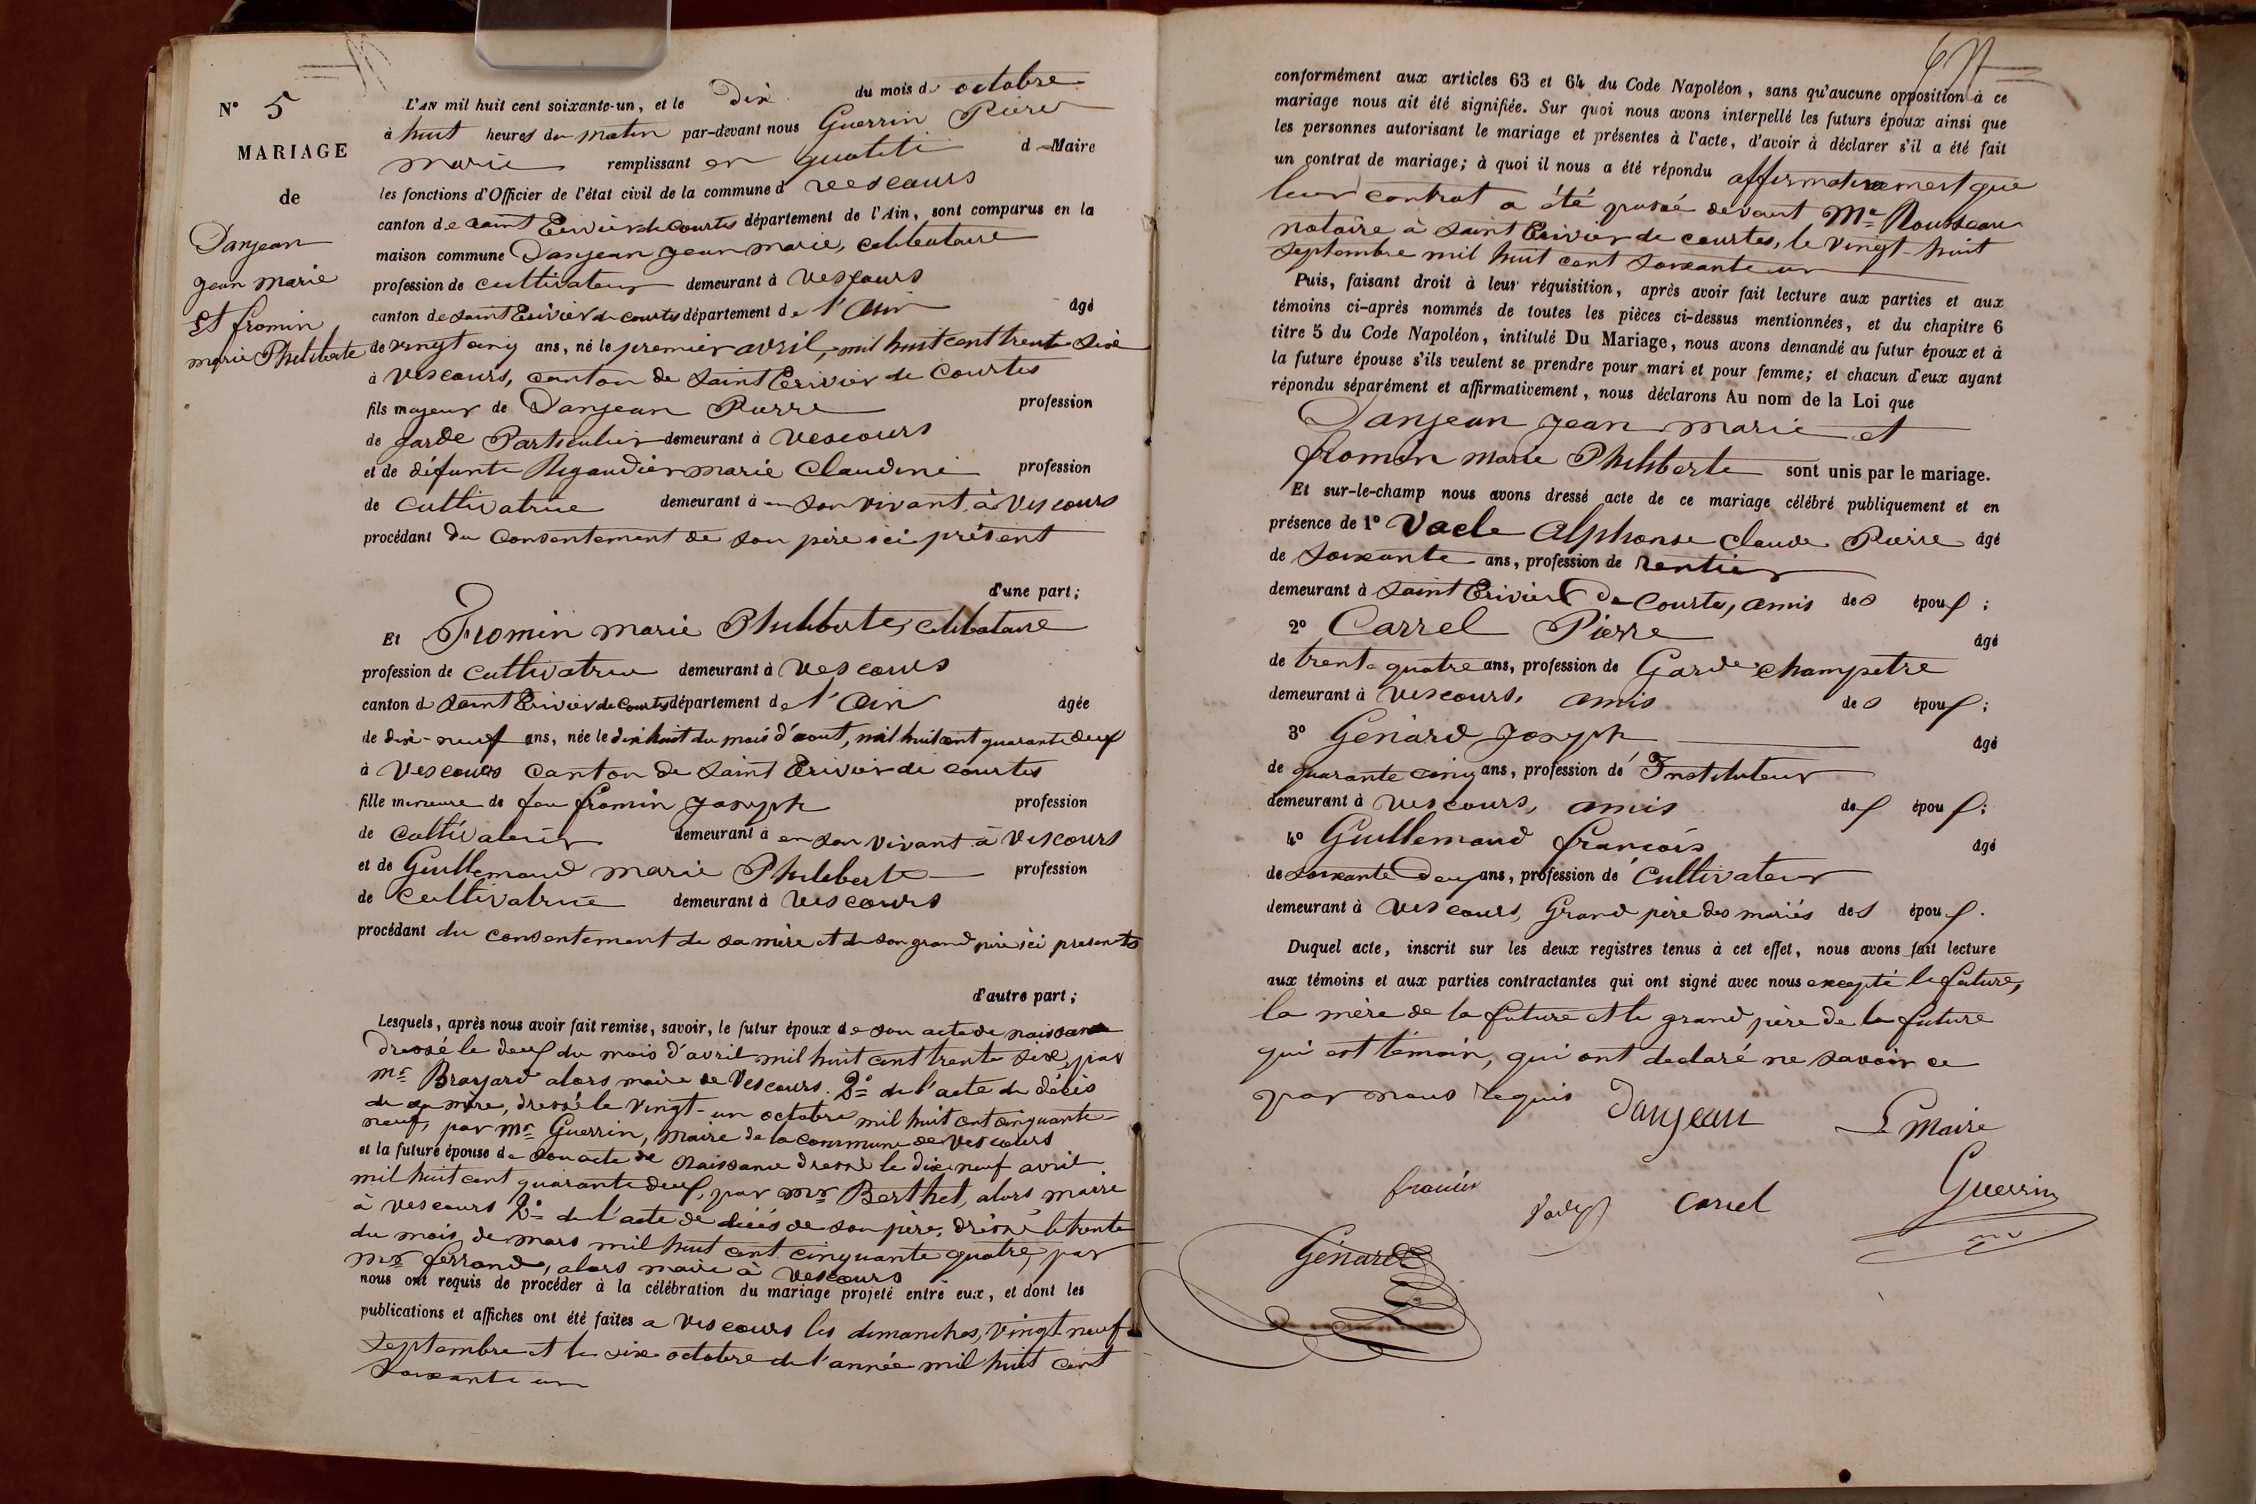 N° 5
MARIAGE
de
Danjean
Jean Marie
Et fromin
marie Philiberte
L'AN mil huit cent soixante-un, et le dix du mois d octobre
à huit heures du matin par-devant nous Guerrin Pierre
marie remplissant en qualité d Maire
les fonctions d'Officier de l'état civil de la commune d Vescours
canton de saint Trivier de Courtes département de l'Ain, sont comparus en la
maison commune Danjean jean marie, célibataire
profession de cultivateur demeurant à Vescours
canton de saint Trivier de courtes département de l'Ain âgé
de vingt cinq ans, né le premier avril, mil huit cent trente six
à Vescours, canton de Saint Trivier de Courtes
fils majeur de Danjean Pierre profession
de garde Particulier demeurant à Vescours
et de défunte Rigaudier marie Claudine profession
de cultivatrice demeurant à en son vivant à Vescours
procédant du consentement de son père ici présent
d'une part;
Et Fromin marie Philiberte, célibataire
profession de cultivatrice demeurant à Vescours
canton d saint Trivier de Courtes département de l'Ain âgée
de dix-neuf ans, née le dix huit du mois d'aout, mil huit cent quarante deux
à Vescours canton de Saint Trivier de courtes
fille mineure de feu fromin Joseph profession
de cultivateur demeurant à en son vivant à Vescours
et de Guillemaud marie Philiberte profession
de cultivatrice demeurant à Vescours
procédant du consentement de sa mère et de son grand père ici presents
d'autre part;
Lesquels, après nous avoir fait remise, savoir, le futur époux de son acte de naissance
dressé le deux du mois d'avril mil huit cent trente six, par
mr Brayard alors maire de Vescours. 2° de l'acte de décès
de sa mère, dressé le vingt-un octobre mil huit cent cinquante
neuf, par mr Guerrin, maire de la commune de Vescours
et la future épouse de son acte de naissance dressé le dix neuf avril
mil huit cent quarante deux, par mr Berthet, alors maire
à Vescours 2° de l'acte de décès de son père, dressé le trente
du mois de mars mil huit cent cinquante quatre, par
mr ferrand, alors maire à Vescours
nous ont requis de procéder à la célébration du mariage projeté entre eux, et dont les
publications et affiches ont été faites a Vescours les dimanches, vingt-neuf
septembre et le six octobre de l'année mil huit cent
soixante un
conformément aux articles 63 et 64 du Code Napoléon, sans qu'aucune opposition à ce
mariage nous ait été signifiée. Sur quoi nous avons interpellé les futurs époux ainsi que
les personnes autorisant le mariage et présentes à l'acte, d'avoir à déclarer s'il a été fait
un contrat de mariage; à quoi il nous a été répondu affirmativement que
leur contrat a été passé devant Me Rousseau
notaire à Saint Trivier de courtes, le vingt-huit
septembre mil huit cent soixante un
Puis, faisant droit à leur réquisition, après avoir fait lecture aux parties et aux
témoins ci-après nommés de toutes les pièces ci-dessus mentionnées, et du chapitre 6
titre 5 du Code Napoléon, intitulé Du Mariage, nous avons demandé au futur époux et à
la future épouse s'ils veulent se prendre pour mari et pour femme; et chacun d'eux ayant
répondu séparément et affirmativement, nous déclarons Au nom de la Loi que
Danjean jean marie et
fromin marie Philiberte sont unis par le mariage.
Et sur-le-champ nous avons dressé acte de ce mariage célébré publiquement et en
présence de 1° Vacle Alphonse Claude Pierre âgé
de soixante ans, profession de rentier
demeurant à Saint Trivier de Courtes, amis des époux ;
2° Carrel Pierre âgé
de trente quatre ans, profession de Garde champetre
demeurant à Vescours, amis des époux ;
3° Génard Joseph âgé
de quarante cinq ans, profession de Instituteur
demeurant à Vescours, amis des époux ;
4° Guillemaud françois âgé
de soixante Deux ans, profession de cultivateur
demeurant à Vescours, Grand père des mariés des époux .
Duquel acte, inscrit sur les deux registres tenus à cet effet, nous avons fait lecture
aux témoins et aux parties contractantes qui ont signé avec nous excepté la future,
la mère de la future et le grand père de la future
qui est témoin, qui ont declaré ne savoir ce
par nous requis
Danjean
Le Maire
Carrel
Guerrin
Génard